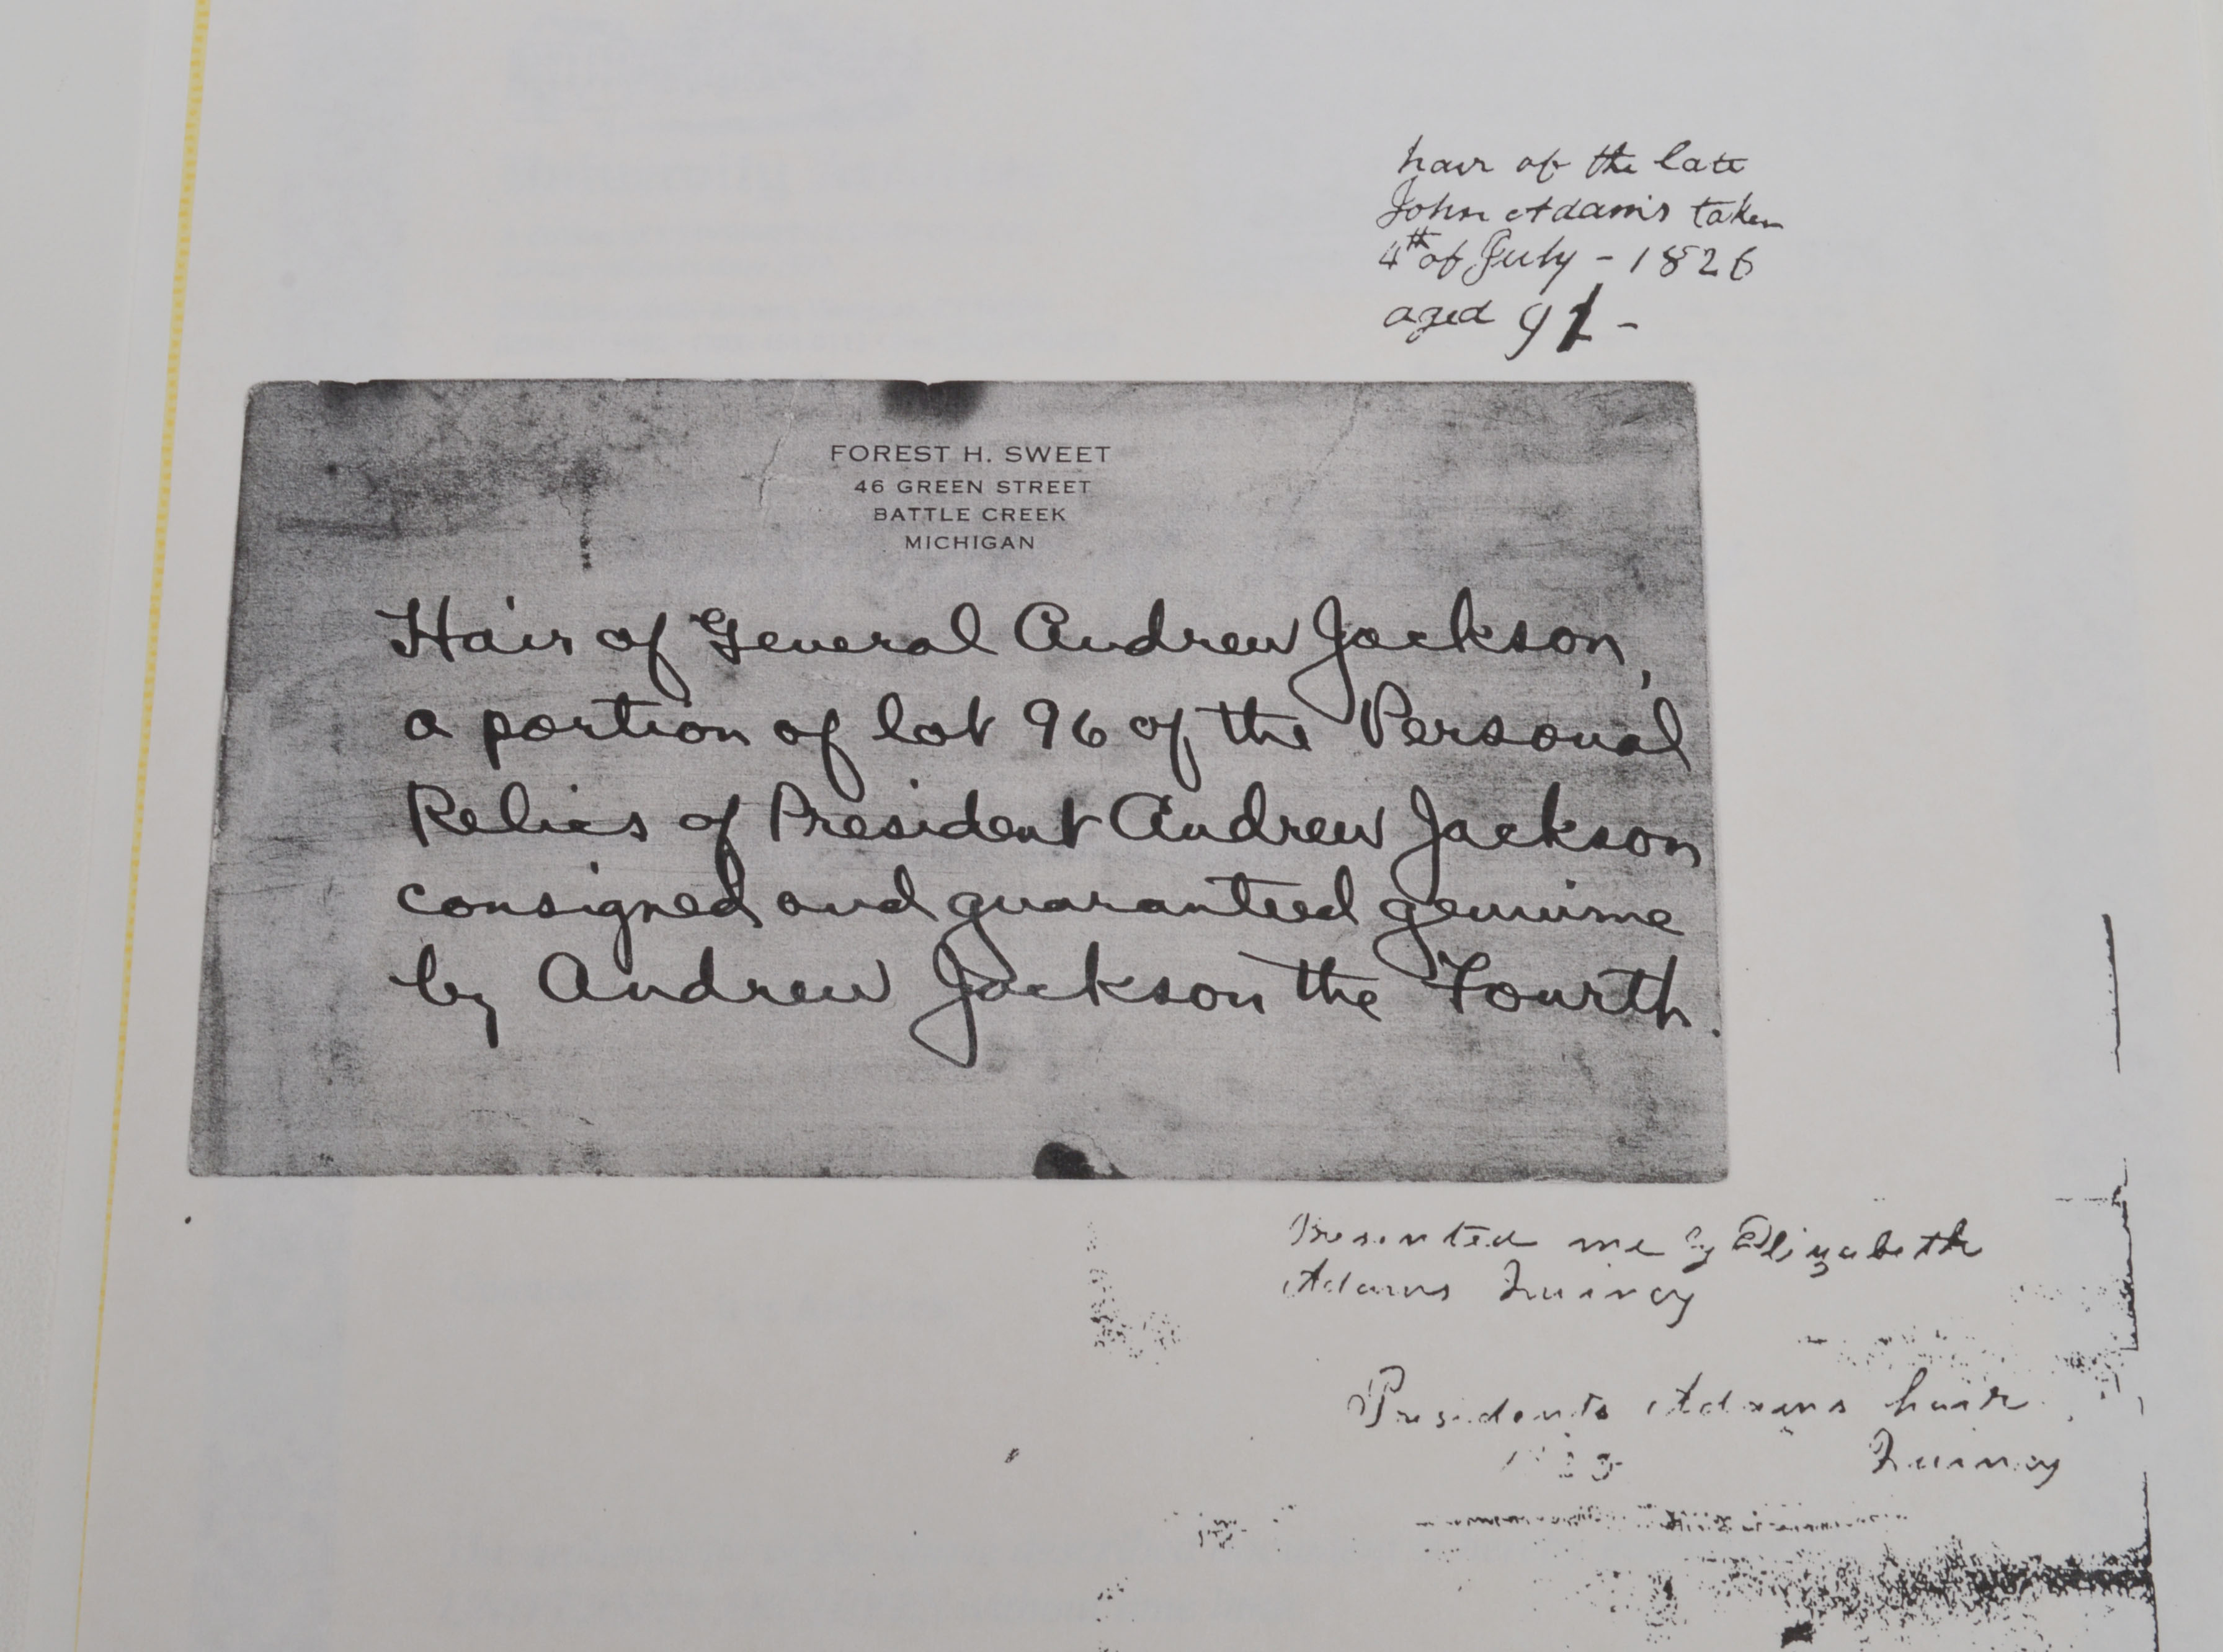 hair of the late
John Adams taken
4th of July - 1826
aged 91 -
FOREST H. SWEET
46 GREEN STREET
BATTLE CREEK
MICHIGAN
Hair of General Andrew Jackson,
a portion of lot 96 of the Personal
Relics of President Andrew Jackson
consigned and guaranteed genuine
by Andrew Jackson the Fourth.
Presented me by Elizabeth
Adams Quincy
Presidents Adams hair
Quincy